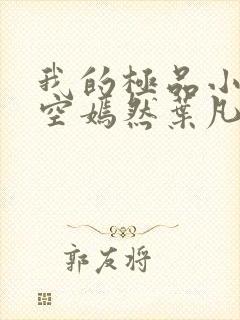 我的極品小
空嫣然葉凡
郭友将